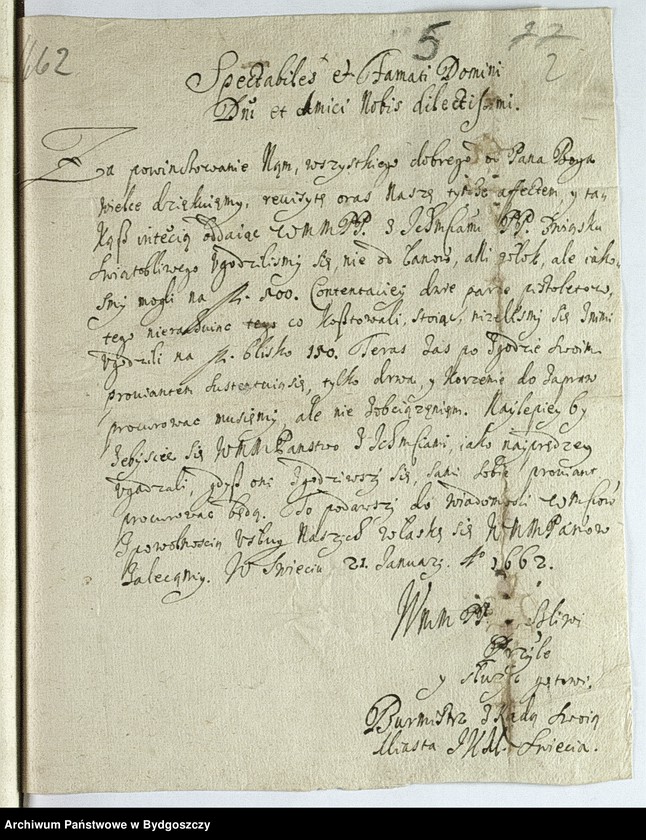 662
5
22
2
Spectabiles et Famati Domini
Dni et Amici Nobis dilectissimi.
Za powinszowanie Nam, wszystkiego dobrego od Pana Boga
wielce dziękuięmy, rewisytę oraz Naszę tymsz affectem, y ta-
intecią oddaiąc WMMPP. z Ichmściami PP. Związku
Swiątobliwego Ugodzilismy się, nie od Łanow, ani włok, ale iako-
smy mogli na fl. 500. Contentaciey dwie parze pistoletow,
tego nierachuiąc co kosztowali, stoiąc, nizelismy się z nimi
Ugodzili na fl. blisko 150. Teras zas po zgodzie swoim
prowiantem sustentuią się, tylko drwa, y korzenie do zapraw
procurowac musięmy, ale nie z obciązęniem. Naylepiey by
zebyscie się WMMPanstwo z Ichmsciami, iako nayprędzey
ugadzali, gdysz oni zgodziwszy się, sami sobie prowiant
procurowac będą. To podawszy do wiadomosci WMsciow
z powolnoscią usług Naszych w łaskę się WMMPanow
Zalecamy. W Swieciu 21. January. Ao 1662.
Wmm PP. Zyliwi
y służyc gotowi.
Burmistrz z Radą swoią
Miasta JKM. Swiecia.
Archiwum Państwowe w Bydgoszczy